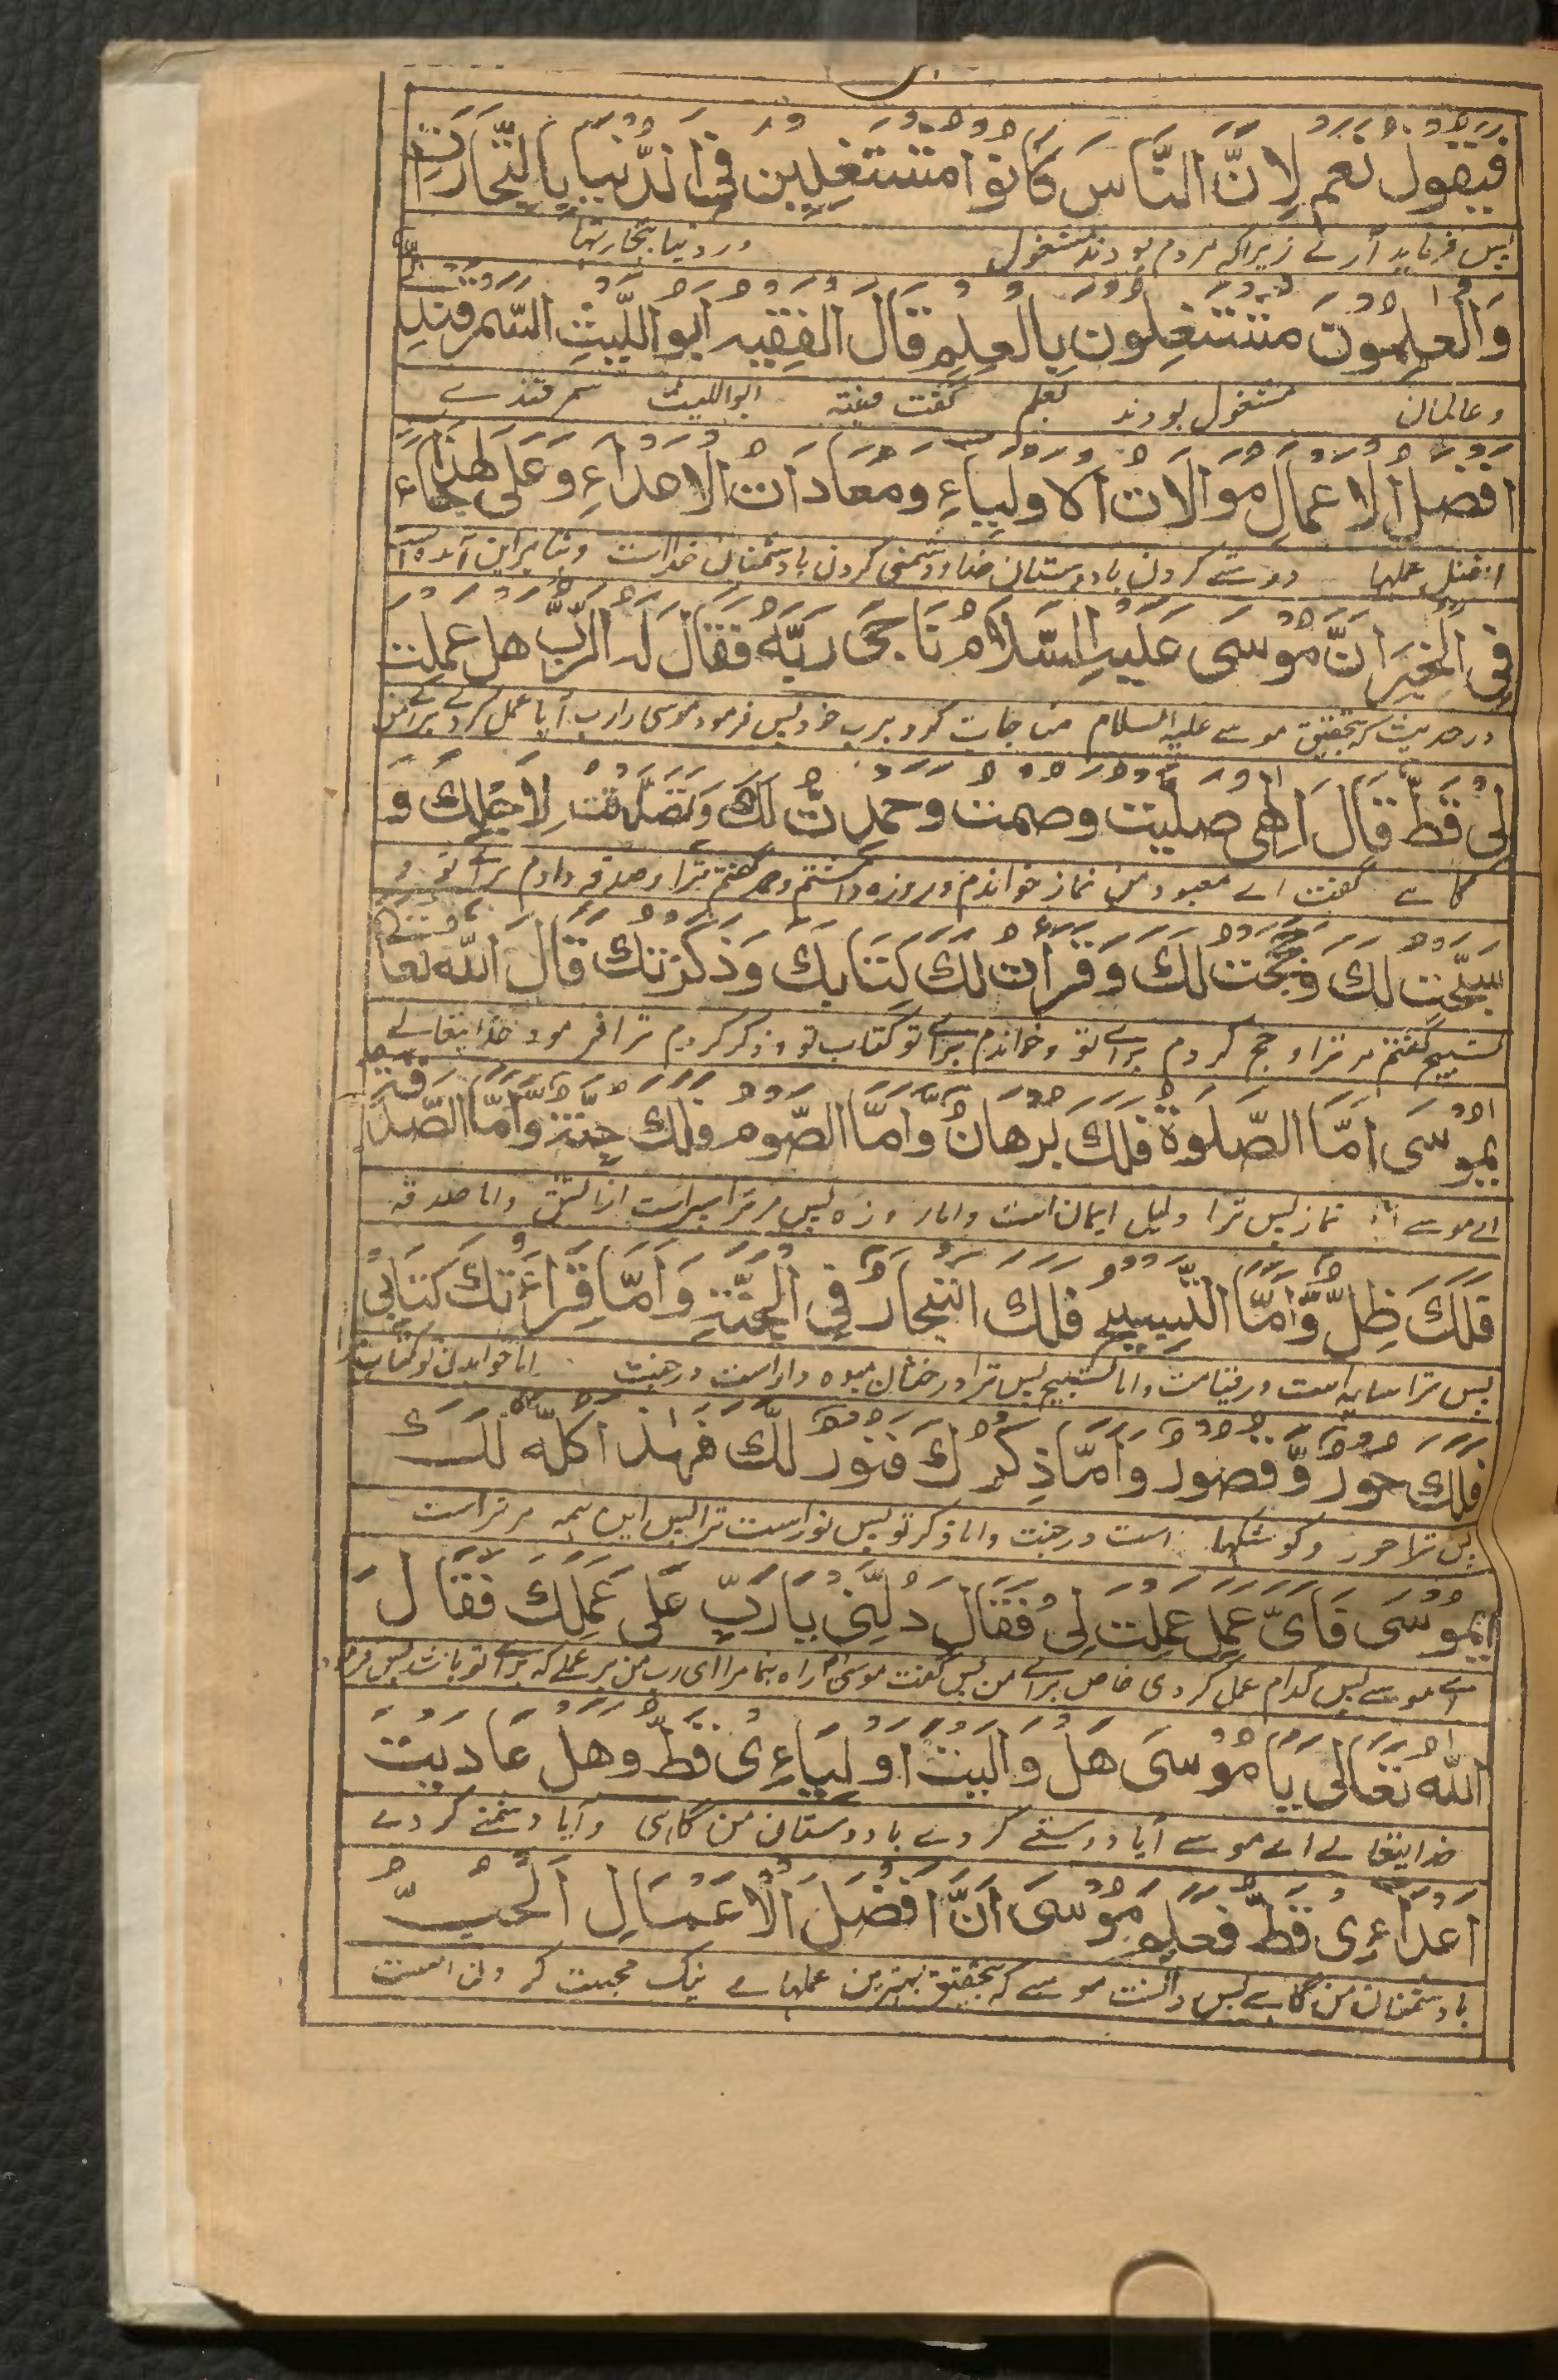 فَيَقُولُ نَعَمْ لِاَنَّ النَّاسَ كَانُوْا مُشْتَغِلِيْنَ فِى الدُّنْيَا بِالتِّجَارَاتِ
پس فرماید آرے زیراکہ مردم بودند مشغول در دنیا بتجارتہا
وَالْعٰلِمُوْنَ مُشْتَغِلُوْنَ بِالْعِلْمِ قَالَ الْفَقِيْهُ اَبُو اللَّيْثِ السَّمَرْقَنْدِىُّ
وعالمان مشغول بودند بعلم گفت فقیہ ابواللیث سمرقندے
اَفْضَلُ الْاَعْمَالِ مُوَالَاتُ الْاَوْلِيَاءِ وَمُعَادَاتُ الْاَعْدَاءِ وَعَلٰى هٰذَا جَاءَ
افضل عملہا دوستے کردن با دوستان خدا و دشمنی کردن با دشمنان خدا است و بنا براین آمدہ است
فِى الْخَبَرِ اَنَّ مُوْسَى عَلَيْهِ السَّلَامُ نَاجٰى رَبَّهٗ فَقَالَ لَهُ الرَّبُّ هَلْ عَمِلْتَ
در حدیث کہ بتحقیق موسے علیہ السلام مناجات کرد برب خود پس فرمود موسی را رب آیا عمل کردے براے من
لِىْ قَطُّ قَالَ اِلٰهِىْ صَلَّيْتُ وَصُمْتُ وَحَمِدْتُ لَكَ وَتَصَدَّقْتُ لِاَجْلِكَ وَ
گاہے گفت اے معبود من نماز خواندم و روزہ داشتم و حمد گفتم ترا و صدقہ دادم براے تو و
سَبَّحْتُ لَكَ وَحَجَجْتُ لَكَ وَقَرَاْتُ لَكَ كِتَابَكَ وَذَكَرْتُكَ قَالَ اللّٰهُ تَعَالٰى
تسبیح گفتم مر ترا و حج کردم براے تو و خواندم براے تو کتاب تو و ذکر کردم ترا فرمود خدایتعالے
يٰمُوْسَى اَمَّا الصَّلٰوةُ فَلَكَ بُرْهَانٌ وَاَمَّا الصَّوْمُ فَلَكَ جُنَّةٌ وَّاَمَّا الصَّدَقَةُ
اے موسے اما نماز پس ترا دلیل ایمان است و اما روزہ پس مر ترا سپر است از آتش و اما صدقہ
فَلَكَ ظِلٌّ وَّاَمَّا التَّسْبِيْحُ فَلَكَ اَشْجَارٌ فِى الْجَنَّةِ وَاَمَّا قِرَاءَتُكَ كِتَابِىْ
پس ترا سایہ است در قیامت و اما تسبیح پس ترا درختان میوہ دار است در جنت اما خواندن تو کتاب مرا
فَلَكَ حُوْرٌ وَّقُصُوْرٌ وَاَمَّا ذِكْرُكَ فَنُوْرٌ لَّكَ فَهٰذَا كُلُّهٗ لَكَ
پس ترا حور و کوشکہا است در جنت و اما ذکر تو پس نور است ترا پس این ہمہ مر ترا است
يٰمُوْسَى فَاَىَّ عَمَلٍ عَمِلْتَ لِىْ فَقَالَ دُلَّنِىْ يَا رَبِّ عَلٰى عَمَلِكَ فَقَالَ
اے موسے پس کدام عمل کردی خاص براے من پس گفت موسی راہ بنما مرا ای رب من بر عملے کہ براے تو باشد پس فرمود
اللّٰهُ تَعَالٰى يَا مُوْسَى هَلْ وَالَيْتَ اَوْلِيَاءِىْ قَطُّ وَهَلْ عَادَيْتَ
خدایتعالے اے موسے آیا دوستے کردے با دوستان من گاہی و آیا دشمنے کردے
اَعْدَاءِىْ قَطُّ فَعَلِمَ مُوْسَى اَنَّ اَفْضَلَ الْاَعْمَالِ اَلْحُبُّ
با دشمنان من گاہے پس دانست موسے کہ بتحقیق بہترین عملہاے نیک محبت کردن است